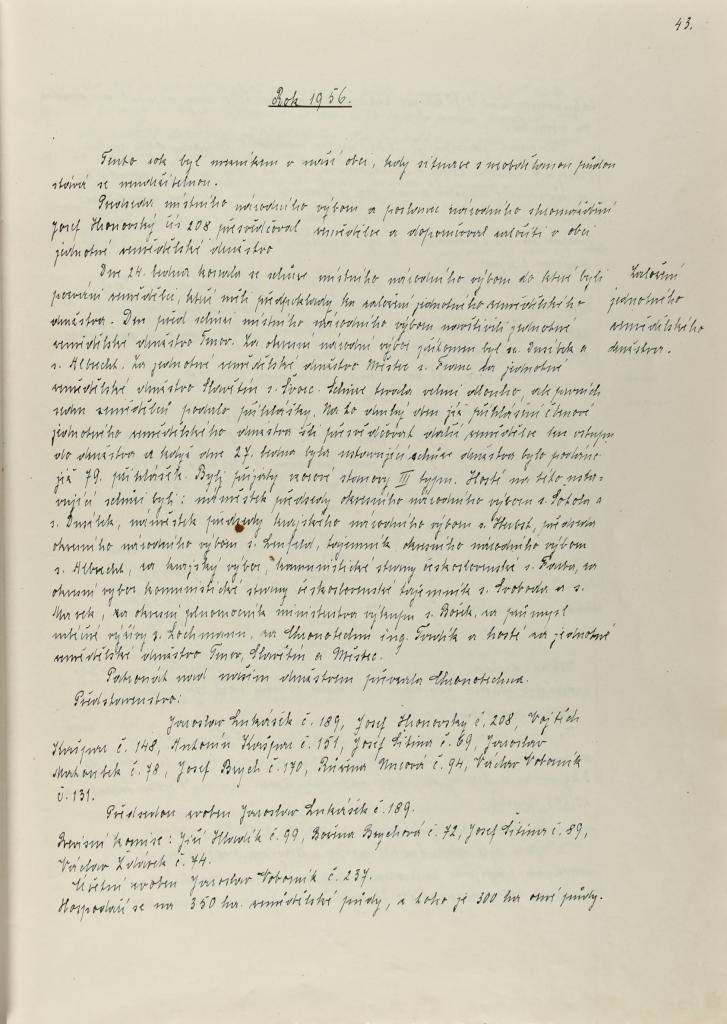 43.
Rok 1956.
Tento rok byl mezníkem v naší obci, kdy situace s neobdělanou půdou
stává se neudržitelnou.
Předseda místního národního výboru a poslanec národního shromáždění
Josef Hronovský čís 208 přesvědčoval zemědělce a doporučoval založiti v obci
jednotné zemědělské družstvo
Dne 24. ledna konala se schůze místního národního výboru do které byli
pozváni zemědělci, kteří měli předpoklady ku založení jednotného zemědělského
družstva. Den před schůzí místního národního výboru navštívili jednotné
zemědělské družstvo Trnov. Za okresní národní výbor přítomen byl s. Dusílek a
s. Albrecht. Za jednotné zemědělské družstvo Městec s. Franc za jednotné
zemědělské družstvo Slavětín s. Švorc. Schůze trvala velmi dlouho, ale prvních
sedm zemědělců podalo přihlášky. Na to druhý den již přihlášení členové
jednotného zemědělského družstva šli přesvědčovat další zemědělce ku vstupu
do družstva a když dne 27. ledna byla ustavující schůze družstva bylo podáno
již 79. přihlášek. Byly přijaty vzorové stanovy III typu. Hosté na této usta-
vující schůzi byli: náměstek předsedy okresního národního výboru s. Sokola a
s. Dusílek, náměstek předsedy krajského národního výboru s. Herbst, předseda
okresního národního výboru s. Lenfeld, tajemník okresního národního výboru
s. Albrecht, za krajský výbor, komunistické strany československé s. Farba, za
okresní výbor komunistické strany československé tajemník s. Svoboda a s.
Marek, za okresní zmocněnec ministerstva výkupu s. Borek, za průmysl
mléčné výživy s. Lochmann, za Chronotechnu ing. Tvrdík a hosté za jednotné
zemědělské družstvo Trnov, Slavětín a Městec.
Patronát nad naším družstvem převzala Chronotechna.
Představenstvo:
Jaroslav Lukášek č. 189, Josef Hronovský č. 208, Vojtěch
Kašpar č. 148, Antonín Kašpar č. 151, Josef Sitina č. 69, Jaroslav
Mohoutek č. 78, Josef Brych č. 170, Růžena Uncová č. 94, Václav Voborník
č. 131.
Předsedou zvolen Jaroslav Lukášek č. 189.
Revisní komise: Jiří Hladík č. 99, Božena Brychová č. 72, Josef Sitina č. 89,
Václav Zdarek č. 74.
Účetní zvolen Jaroslav Voborník č. 237.
Hospodaří se na 350 ha. zemědělské půdy, z toho je 300 ha orné půdy.
Založení
jednotného
zemědělského
družstva.